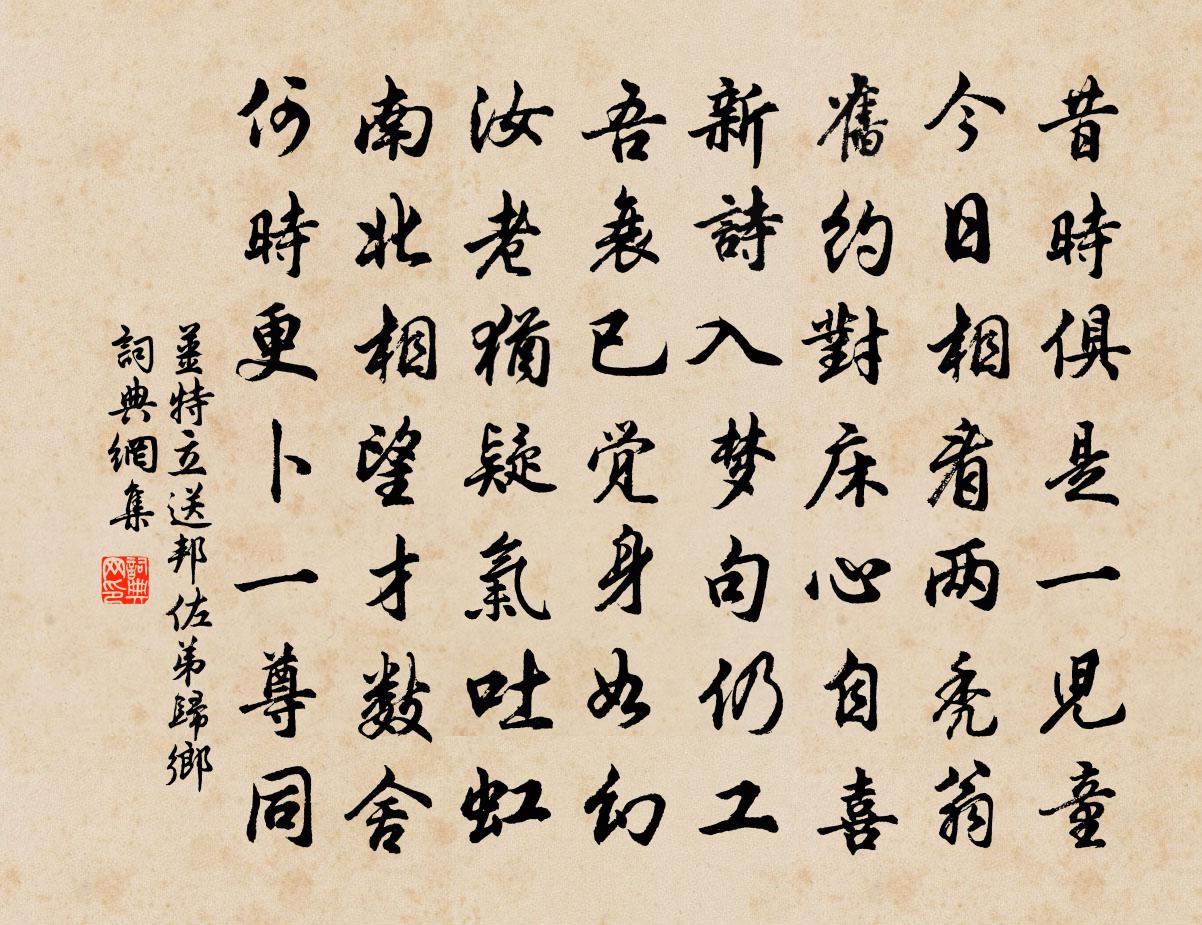 昔時俱是一児童
今日相看两秃翁
舊約對床心自喜
新詩入梦句仍工
吾衰已觉身如幻
汝老猶疑氣吐虹
南北相望才数舍
何時更卜一尊同
姜特立送邦佐弟歸鄉
詞典網集
詞典网印